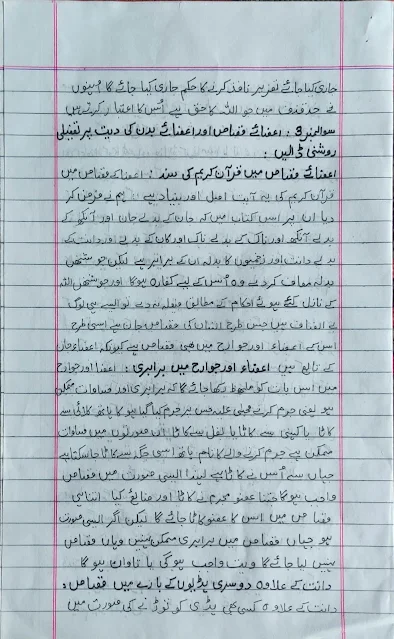 جاری کیا جائے تعزیر نافذ کرنے کا حکم جاری کیا جائے گا اُنہوں
نے حد قذف میں جو اللہ کا حق ہے اُس کا اعتبار کرتے ہیں
سوال نمبر 3 : اعضائے قصاص اور اعضائے بدن کی دیت پر تفصیلی
روشنی ڈالیں :
اعضائے قصاص میں قرآن کریم کی سند : اعضاء کے قصاص میں
قرآن کریم کی یہ آیت اصل اور بنیاد ہے ہم نے فرض کر
دیا ان پر اس کتاب میں کہ جان کے بدلے جان اور آنکھ کے
بدلے آنکھ اور ناک کے بدلے ناک اور کان کے بدلے اور دانت کے
بدلے دانت اور زخموں کا بدلہ ان کے برابر ہے لیکن جو شخص
بدلہ معاف کر دے وہ اُس کے لیے کفارہ ہوگا اور جو شخص اللہ
کے نازل کیے ہوئے احکام کے مطابق فیصلہ نہ دے تو ایسے ہی لوگ
بے انصاف ہیں جس طرح انسان کی قصاص جان ہے اسی طرح
اس کے اعضاء اور جوارح میں بھی قصاص ہے کیونکہ اعضاء جان
کے تابع ہیں اعضاء اور جوارح میں برابری : اعضا اور جوارح
میں اس بات کو ملحوظ رکھا جائے گا کہ برابری اور مساوات ممکن
ہو یعنی جرم کرنے والے جس پر جرم کیا گیا ہو کا ہاتھ کلائی سے
کاٹا یا کہنی سے کاٹا یا بغل سے کاٹا ان صورتوں میں مساوات
ممکن ہے جرم کرنے والے کا تمام ہاتھ اسی جگہ سے کاٹا جا سکتا ہے
جہاں سے اُس نے کاٹا ہے لہذا ایسی صورت میں قصاص
واجب ہوگا جتنا عضو مجرم نے کاٹا اور ضائع کیا اتنا ہی
قصاص میں اس کا عضو کاٹا جائے گا لیکن اگر ایسی صورت
ہو جہاں قصاص میں برابری ممکن نہیں وہاں قصاص
نہیں لیا جائے گا دیت واجب ہوگی یا تاوان ہوگا
دانت کے علاوہ دوسری ہڈیوں کے بارے میں قصاص :
دانت کے علاوہ کسی بھی ہڈی کو توڑنے کی صورت میں